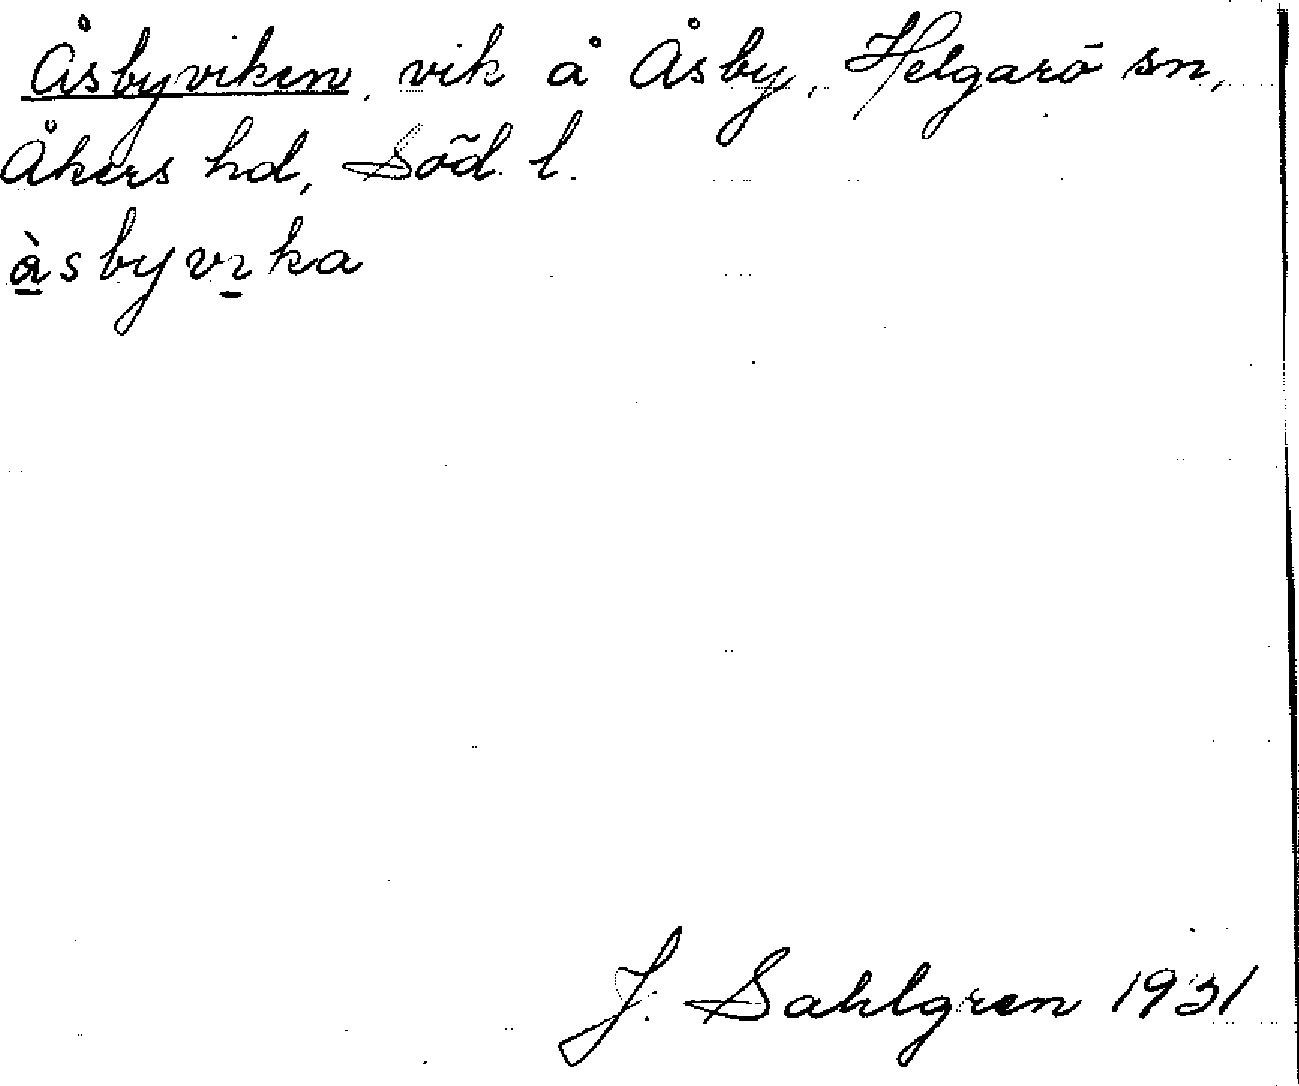 Åsbyviken, vik å Åsby, Helgarö sn,
Åkers hd, Söd. l.
å̀sbyvıka
J. Sahlgren 1931